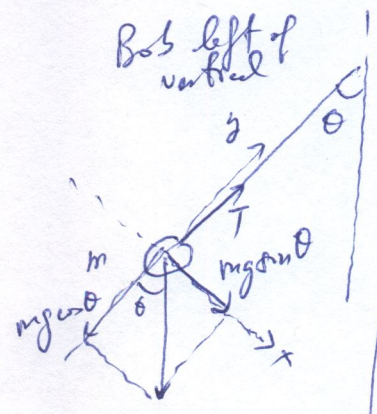 Bob left of
vertical
θ
y
T
m
mg sinθ
mg cosθ
θ
x